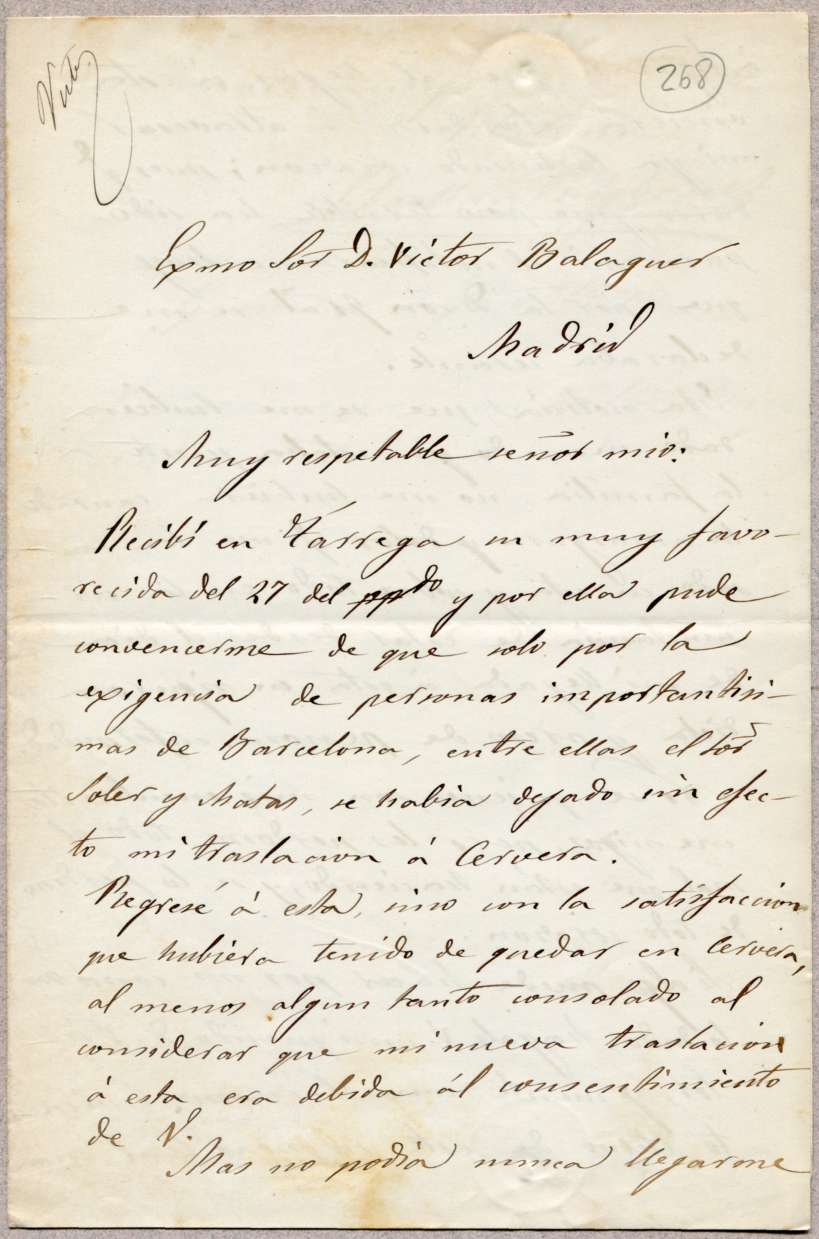 268
Exmo Sor D. Victor Balaguer
Madrid
Muy respetable señor mio:
Recibí en Tárrega su muy favo-
recida del 27 del ppdo y por ella pude
convencerme de que solo por la
exigencia de personas importantisi-
mas de Barcelona, entre ellas el Sor
Soler y Matas, se habia dejado sin efec-
to mi traslacion á Cervera.
Regresé á esta, sino con la satisfaccion
que hubiera tenido de quedar en Cervera,
al menos algun tanto consolado al
considerar que mi nueva traslacion
á esta era debida ál consentimiento
de V.
Mas no podia nunca llegarme